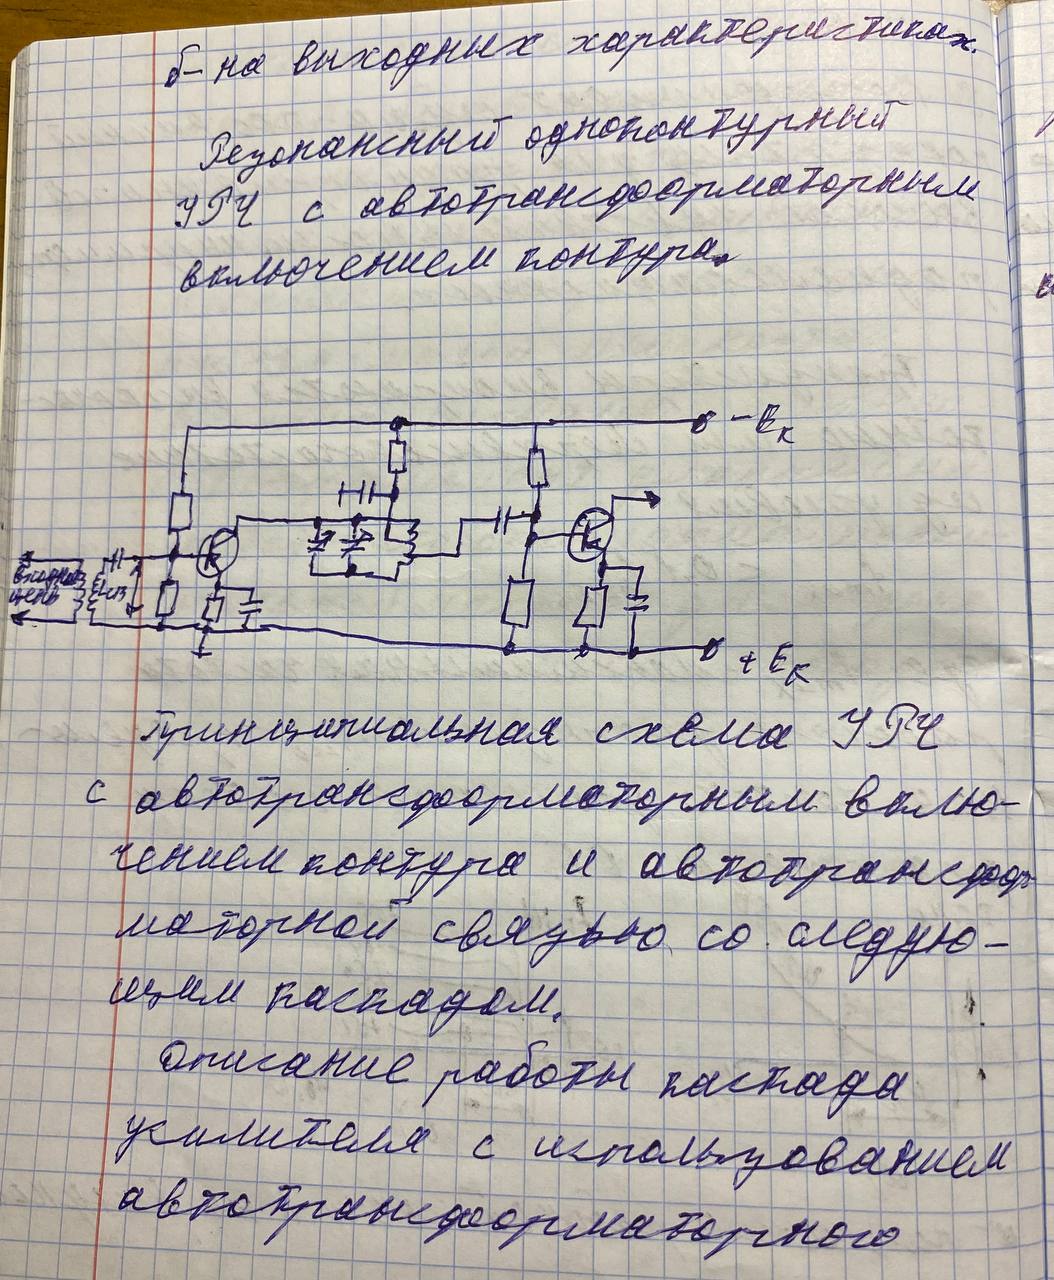 б- на выходных характеристиках.
Резонансный одноконтурный
УРЧ с автотрансформаторным
включением контура.
-Eк
входная
цепь
Lсв
+Eк
Принципиальная схема УРЧ
с автотрансформаторным вклю-
чением контура и автотрансфор-
маторной связью со следую-
щим каскадом.
Описание работы каскада
усилителя с использованием
автотрансформаторного